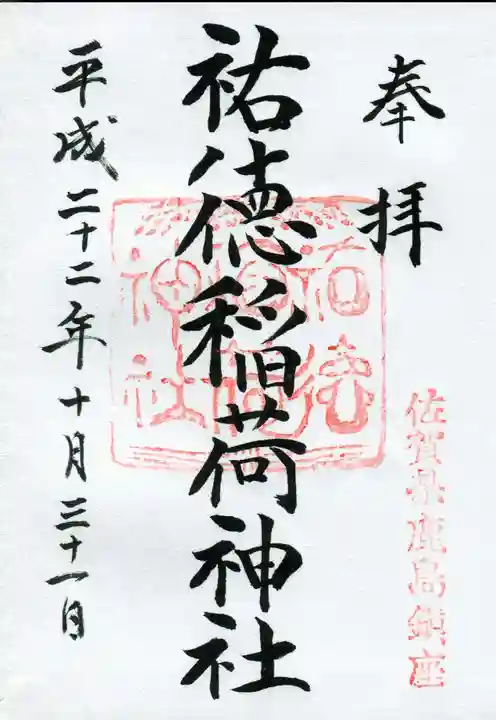 奉拝
佐賀県鹿島鎮座
祐徳稲荷神社
祐徳
稲荷
神社
平成二十二年十月三十一日